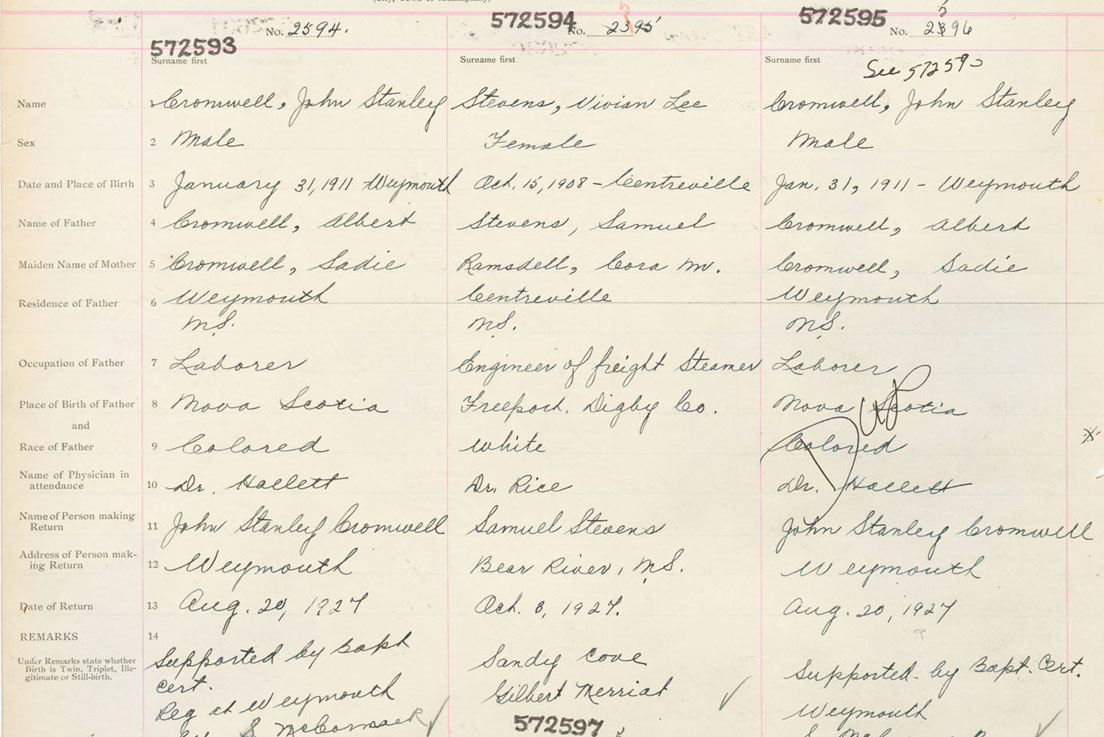 572593 No. 2594. 572594 No. 2395 572595 No. 2396
See 572590
Surname first Surname first Surname first
Name 1 Cromwell, John Stanley Stevens, Vivian Lee Cromwell, John Stanley
Sex 2 Male Female Male
Date and Place of Birth 3 January 31, 1911 Weymouth Oct. 15, 1908 - Centreville Jan. 31, 1911 - Weymouth
Name of Father 4 Cromwell, Albert Stevens, Samuel Cromwell, Albert
Maiden Name of Mother 5 Cromwell, Sadie Ramsdell, Cora M. Cromwell, Sadie
Residence of Father 6 Weymouth Centreville Weymouth
N.S. N.S. N.S.
Occupation of Father 7 Laborer Engineer of freight Steamer Laborer
Place of Birth of Father 8 Nova Scotia Freeport. Digby Co. Nova Scotia
and
Race of Father 9 Colored White Colored
Dup
Name of Physician in
attendance 10 Dr. Hallett Dr. Rice Dr. Hallett
Name of Person making
Return 11 John Stanley Cromwell Samuel Stevens John Stanley Cromwell
Address of Person mak-
ing Return 12 Weymouth Bear River, N.S. Weymouth
Date of Return 13 Aug. 20, 1927 Oct. 8, 1927. Aug. 20, 1927
REMARKS 14
Under Remarks state whether
Birth is Twin, Triplet, Ille-
gitimate or Still-birth.
Supported by Bapt Sandy Cove Supported by Bapt. Cert.
Cert. Gilbert Merriat Weymouth
Reg at Weymouth
S McCormack
572597